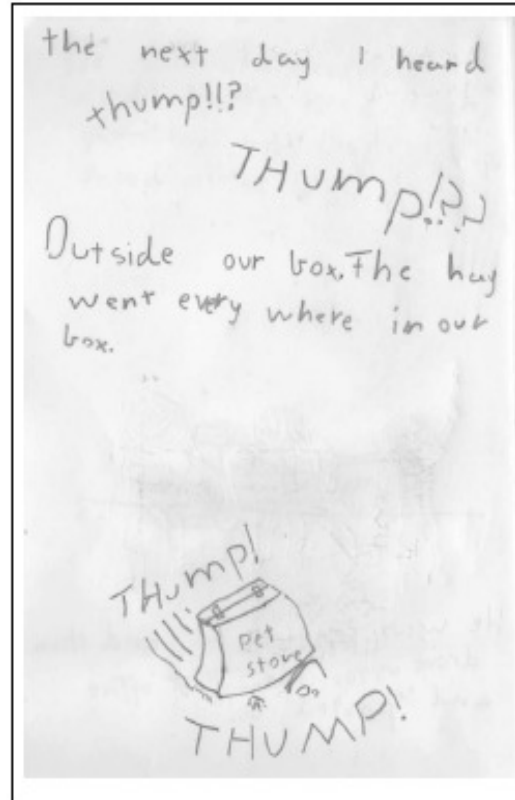 the next day I heard
thump!!?
THUMP!??
Outside our box. The hay
went every where in our
box.
THUMP!
pet
store
THUMP!